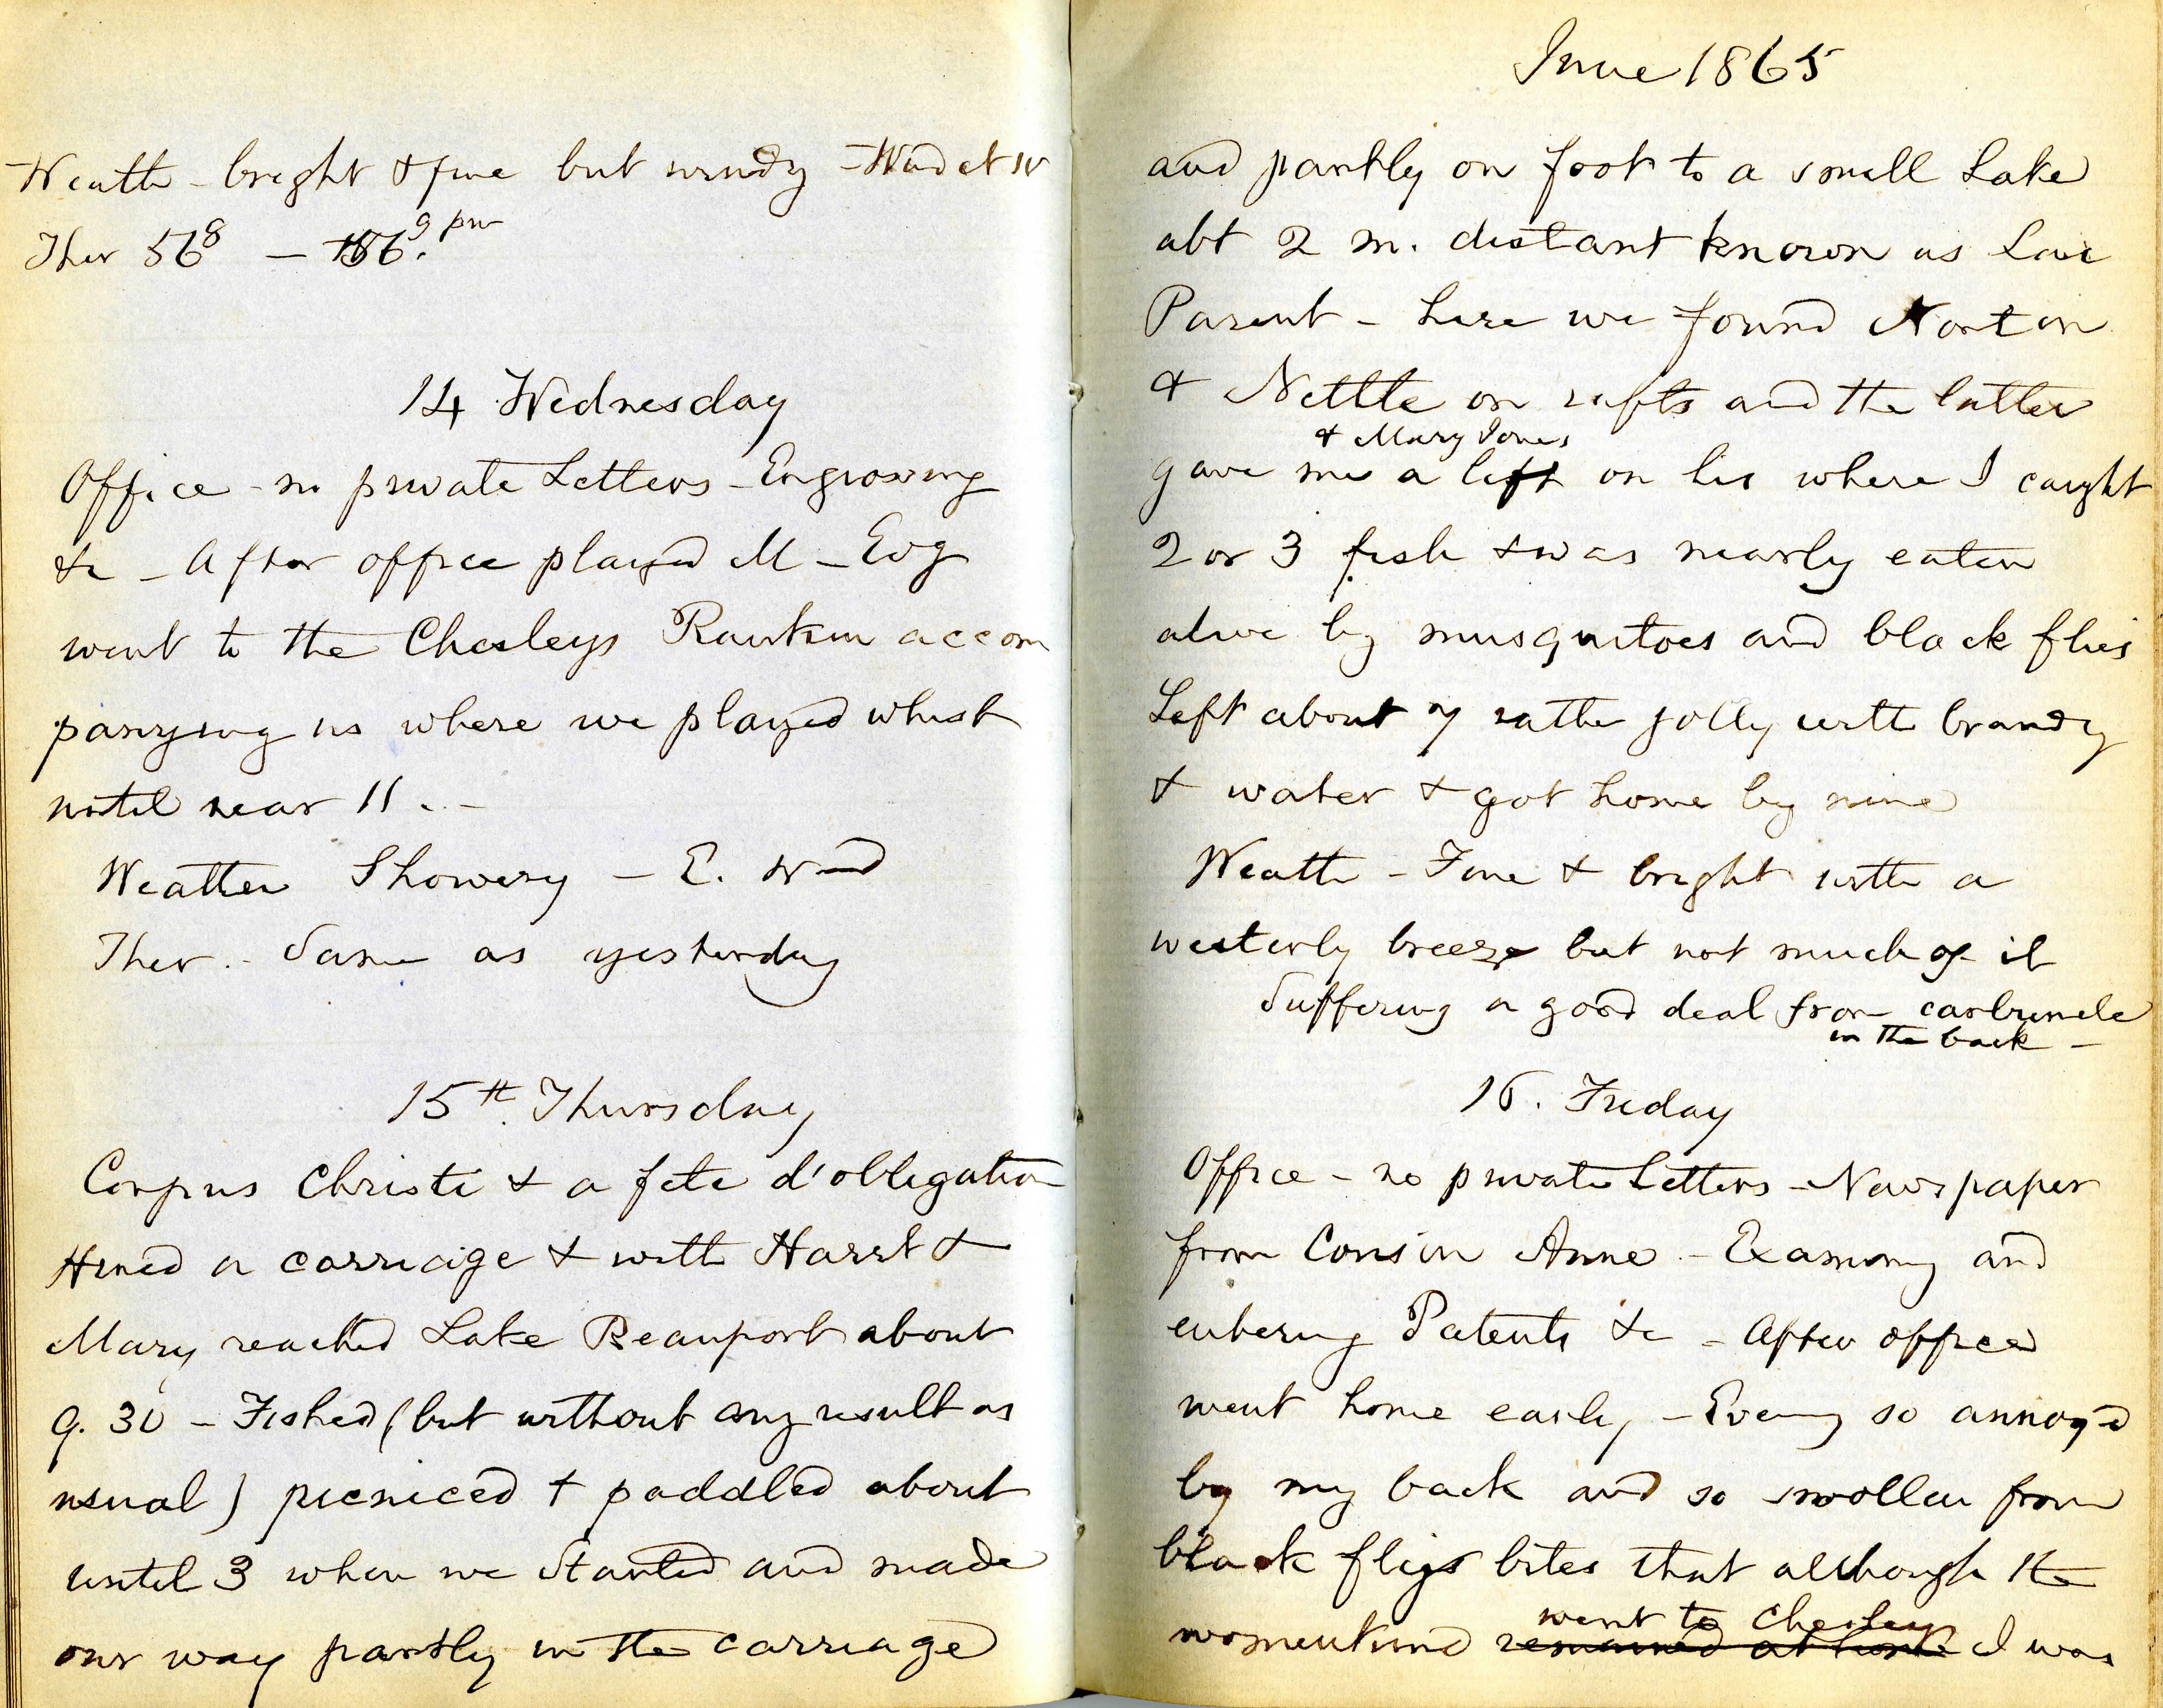 Weathr - bright & fine but windy - Wind at W
Ther 56⁸ — 56. 9 pm
14 Wednesday
Office - no private Letters - Engrossing
&c - After office played M - Evg
went to the Chesleys Rankin accom
panying us where we played whist
until near 11 . -
Weather Showery - E. Wind
Ther. - Same as yesterday
15th. Thursday
Corpus Christi & a fete d'obligation
Hired a carriage & with Harrt &
Mary reached Lake Beauport about
9. 30 - Fished (but without any result as
usual) picniced & paddled about
until 3 when we started and made
our way partly in the carriage
June 1865
and partly on foot to a small Lake
abt 2 m. distant known as Lac
Parent - here we found Norton
& Nettle on rafts and the latter
& Mary Jones
gave me a lift on his where I caught
2 or 3 fish & was nearly eaten
alive by musquitoes and black flies
Left about 7 rather jolly with brandy
& water & got home by nine
Weathr - Fine & bright with a
westerly breeze but not much of it
Suffering a good deal from carbuncle
in the back -
16. Friday
Office - no private Letters - Newspaper
from Cousin Anne - Examing and
entering Patents &c - After office
went home early - Eveng so annoy'd
by my back and so swollen from
black flies bites that although the
went to Chesleys
womenkind remained at home I was